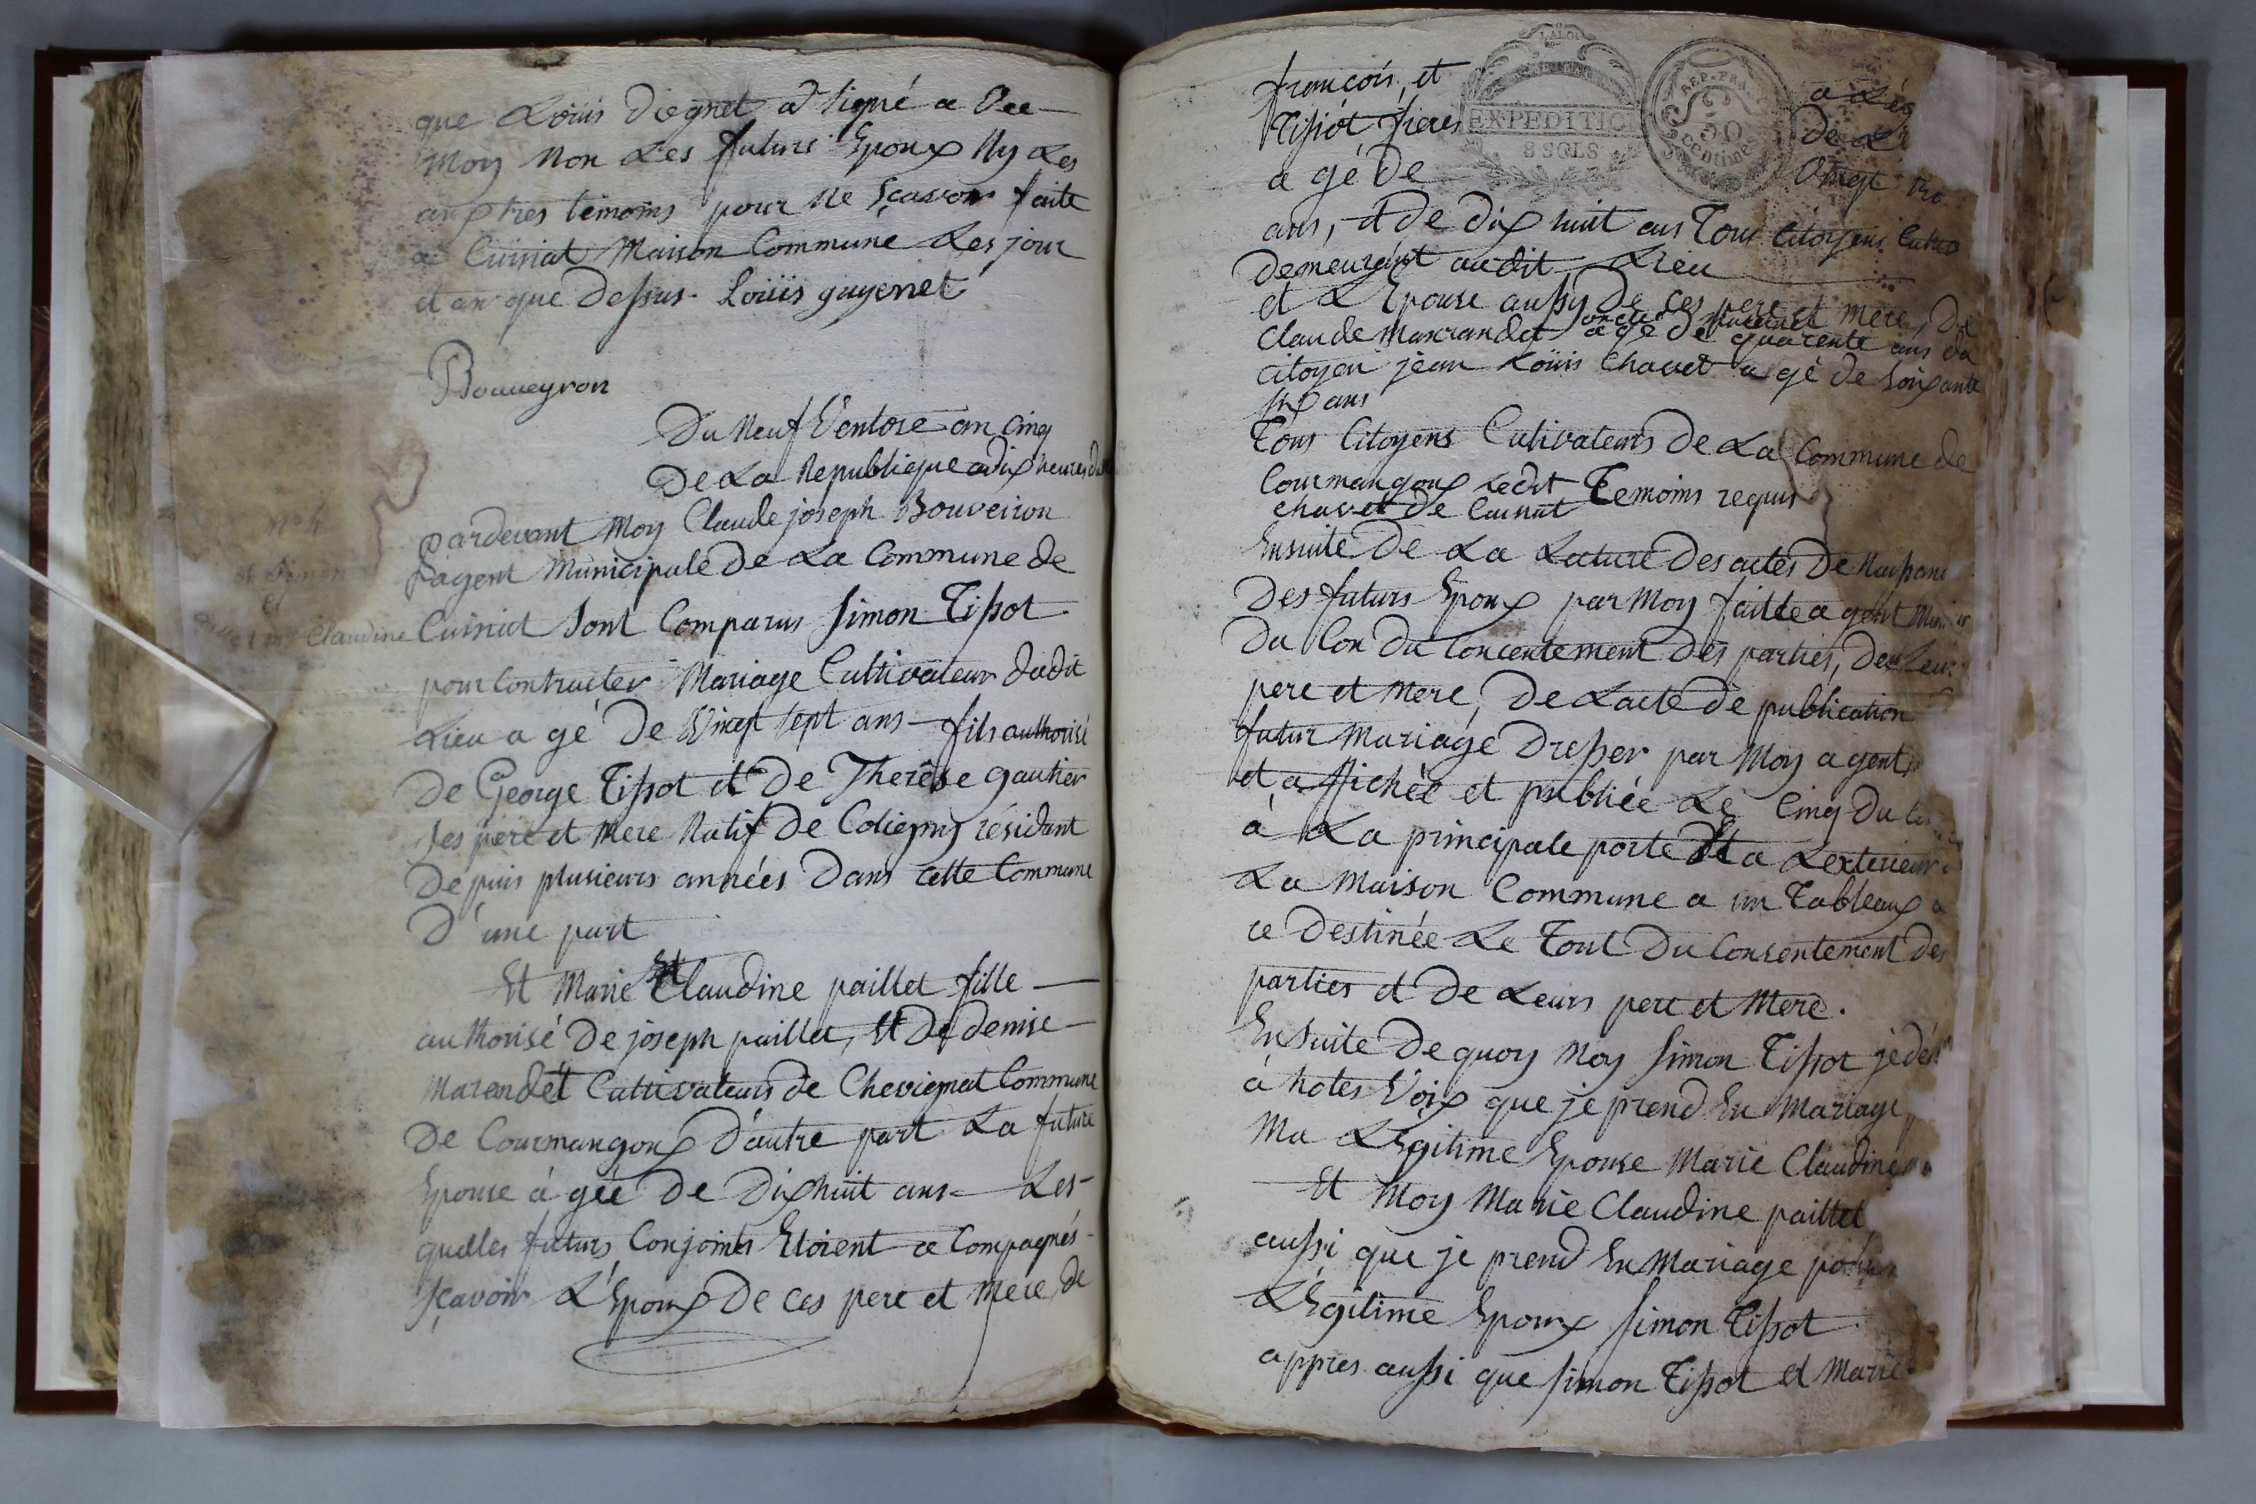 que Loüis Diognet a signé a Vec
Moy Non Les futurs Epoux Ny Les
autres temoins pour ne Sçavoir faite
a Cuisiat Maison Commune Les jour
et an que dessus. Loüis guyennet
Bouueyron
Du Neuf Ventose an Cinq
De La Republique adix heures du
pardevant Moy Claude joseph Bouveiron
agent Municipale De La Commune de
Cuisiat Sont Comparus Simon Tissot
N° 4
et Simon
et
Claudine
pour Contracter Mariage Cultivateur dudit
Lieu a gé De Vingt sept ans fils authorisé
De George Tissot et De Therèse gautier
ses père et Mere Natif De Coligny résidant
Depuis plusieurs années Dans cette Commune
D'une part
Et Marie Claudine paillet fille
authorisé De joseph paillet, Et De denise
Marandet Cultivateurs de Chevignat Commune
De Courmangoux D'autre part La future
Epouse à gée De Dixhuit ans Les
quelles futurs Conjoints Etoient a Compagnés
Sçavoir L'Epoux De Ces pere et Mere, de
françois, et
Tissot frères
EXPEDITIO
8 SOLS
LA LOI
REP. FRA.
50
centimes
a gé De
De L
Vingt tro
ans, et de dix huit ans Tous Citoyens Cultiv
Demeurant audit Lieu
et L'Epouse aussy De ces pere et mere, De
oncle maternel
Claude Marandet a gé De quarente ans du
Citoyen jean Loüis Chavet a gé De Soixante
six ans
Tous Citoyens Cultivateurs De La Commune de
Courmangoux Ledit Temoins requis
Chavet De Cuisiat
Ensuite De La Lecture Des actes De Naissance
Des futurs Epoux par Moy faitte agent Muni
Du Con Du Concentement Des parties, De Leur
pere et Mere, De Lacte De publication
futur Mariage Dresser par Moy agent
et affichée et publiée Le Cinq Du
à La principale porte Et a Lexterieur
La Maison Commune a un Tableaux a
ce Destinée Le Tout Du Consentement Des
parties et De Leurs pere et Mere.
Ensuite De quoy Moy Simon Tissot je
à hotes Voix que je prend En Mariage
Ma LEgitime Epouse Marie Claudine
Et Moy Marie Claudine paillet
aussi que je prend En Mariage pour
LEgitime Epoux Simon Tissot
appres aussi que Simon Tissot et Marie